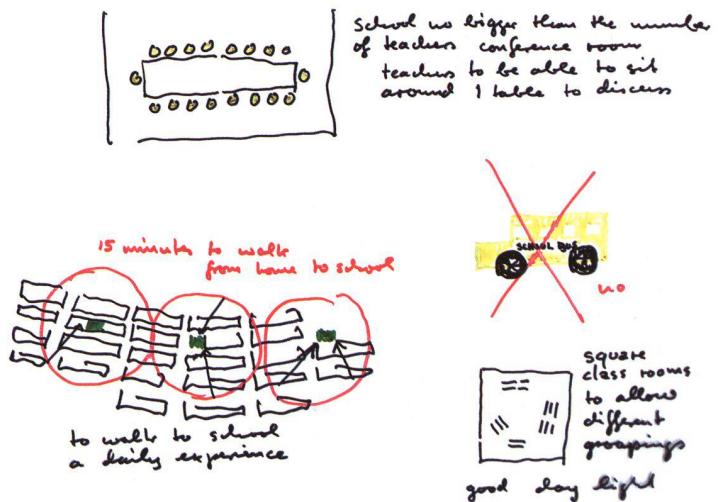 school no bigger than the number
of teachers conference room
teachers to be able to sit
around 1 table to discuss
15 minutes to walk
from home to school
SCHOOL BUS
no
to walk to school
a daily experience
square
class rooms
to allow
different
groupings
good day light